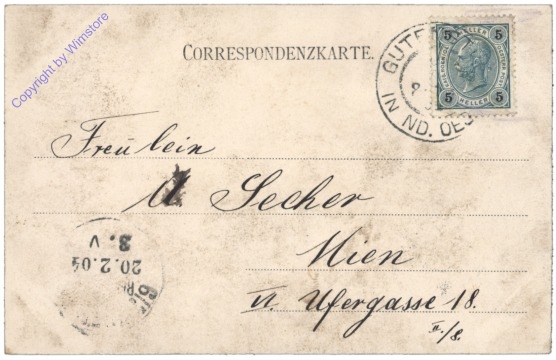 Copyright by Wimstore
CORRESPONDENZKARTE.
GUTE
IN ND. OES
5 5
HELLER
5 5
Freülein
A Secher
Wien
VI Ufergasse 18.
II/8.
20.2.04
3. V